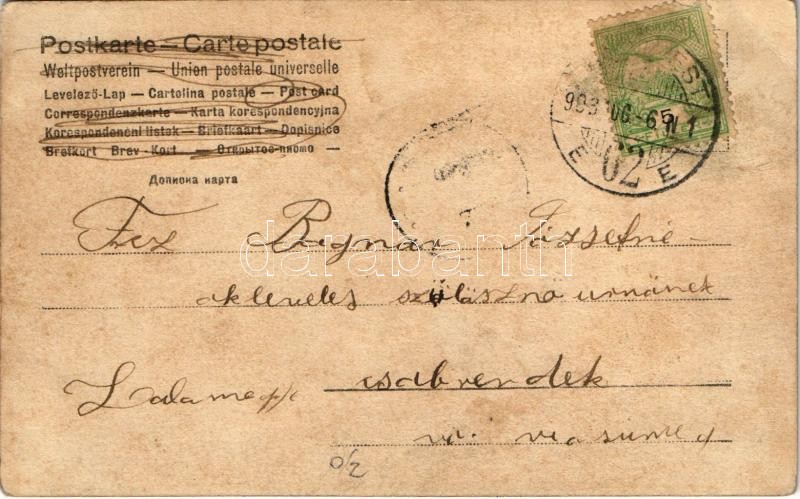 Postkarte — Carte postale
Weltpostverein — Union postale universelle
Levelező-Lap — Cartolina postale — Post card
Correspondenzkarte — Karta korespondencyjna
Korespondenční lístek — Briefkaart — Dopisnice
Brefkort Brev-Kort — Открытое-письмо —
Дописна карта
903 06
62
E E
Bognár Józsefné
okleveles szülésznő úrnőnek
Zalamegye
csabrendek
darabanth
0/2